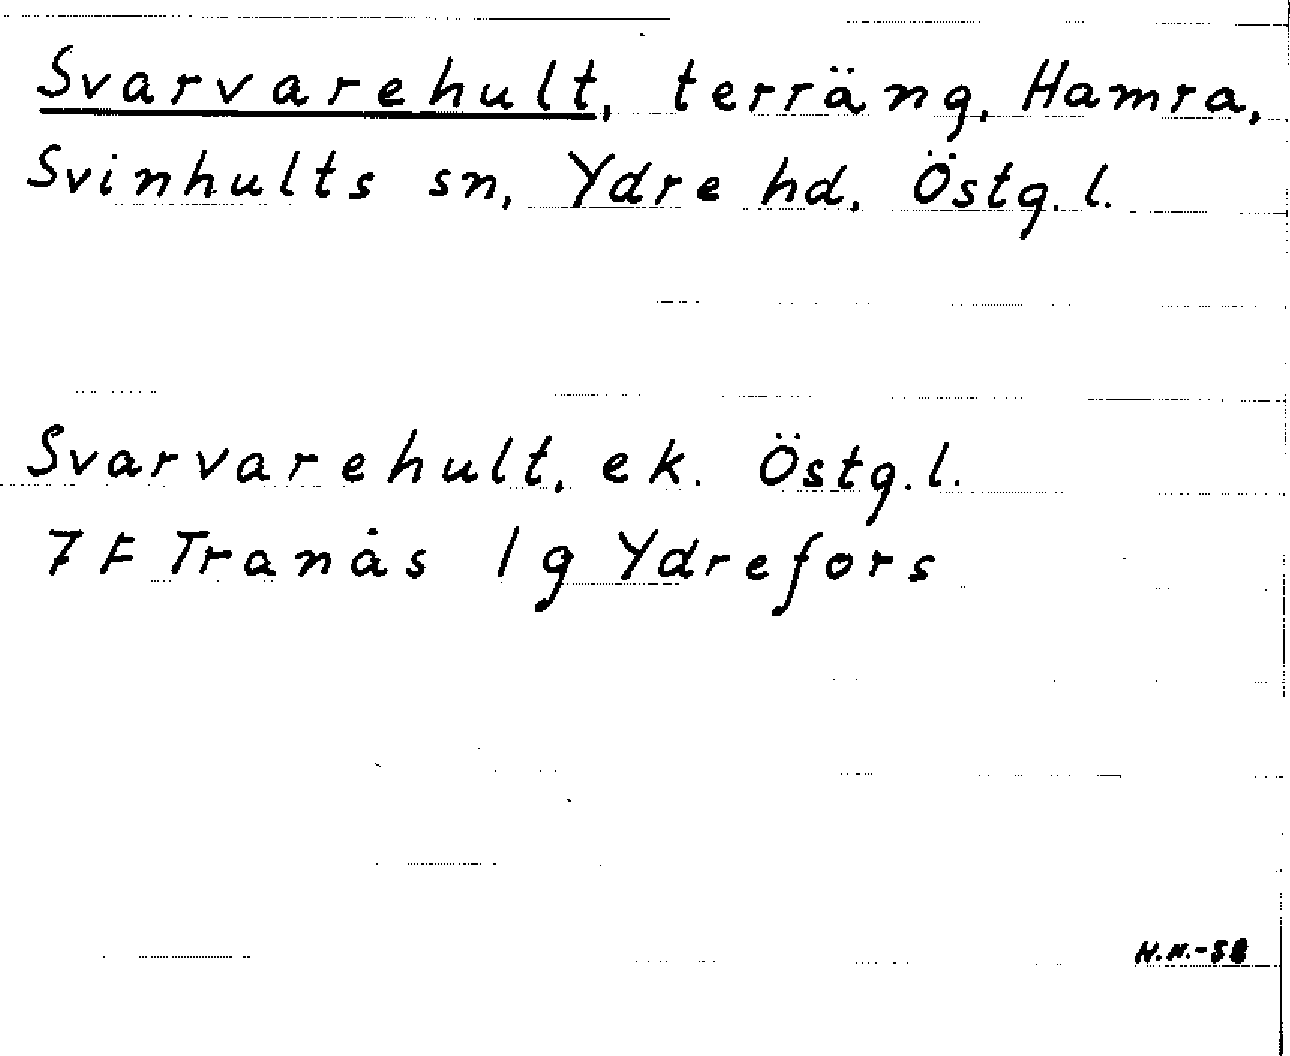 Svarvarehult, terräng, Hamra,
Svinhults sn, Ydre hd, Östg. l.
Svarvarehult, ek. Östg. l.
7 F Tranås 1 g Ydrefors